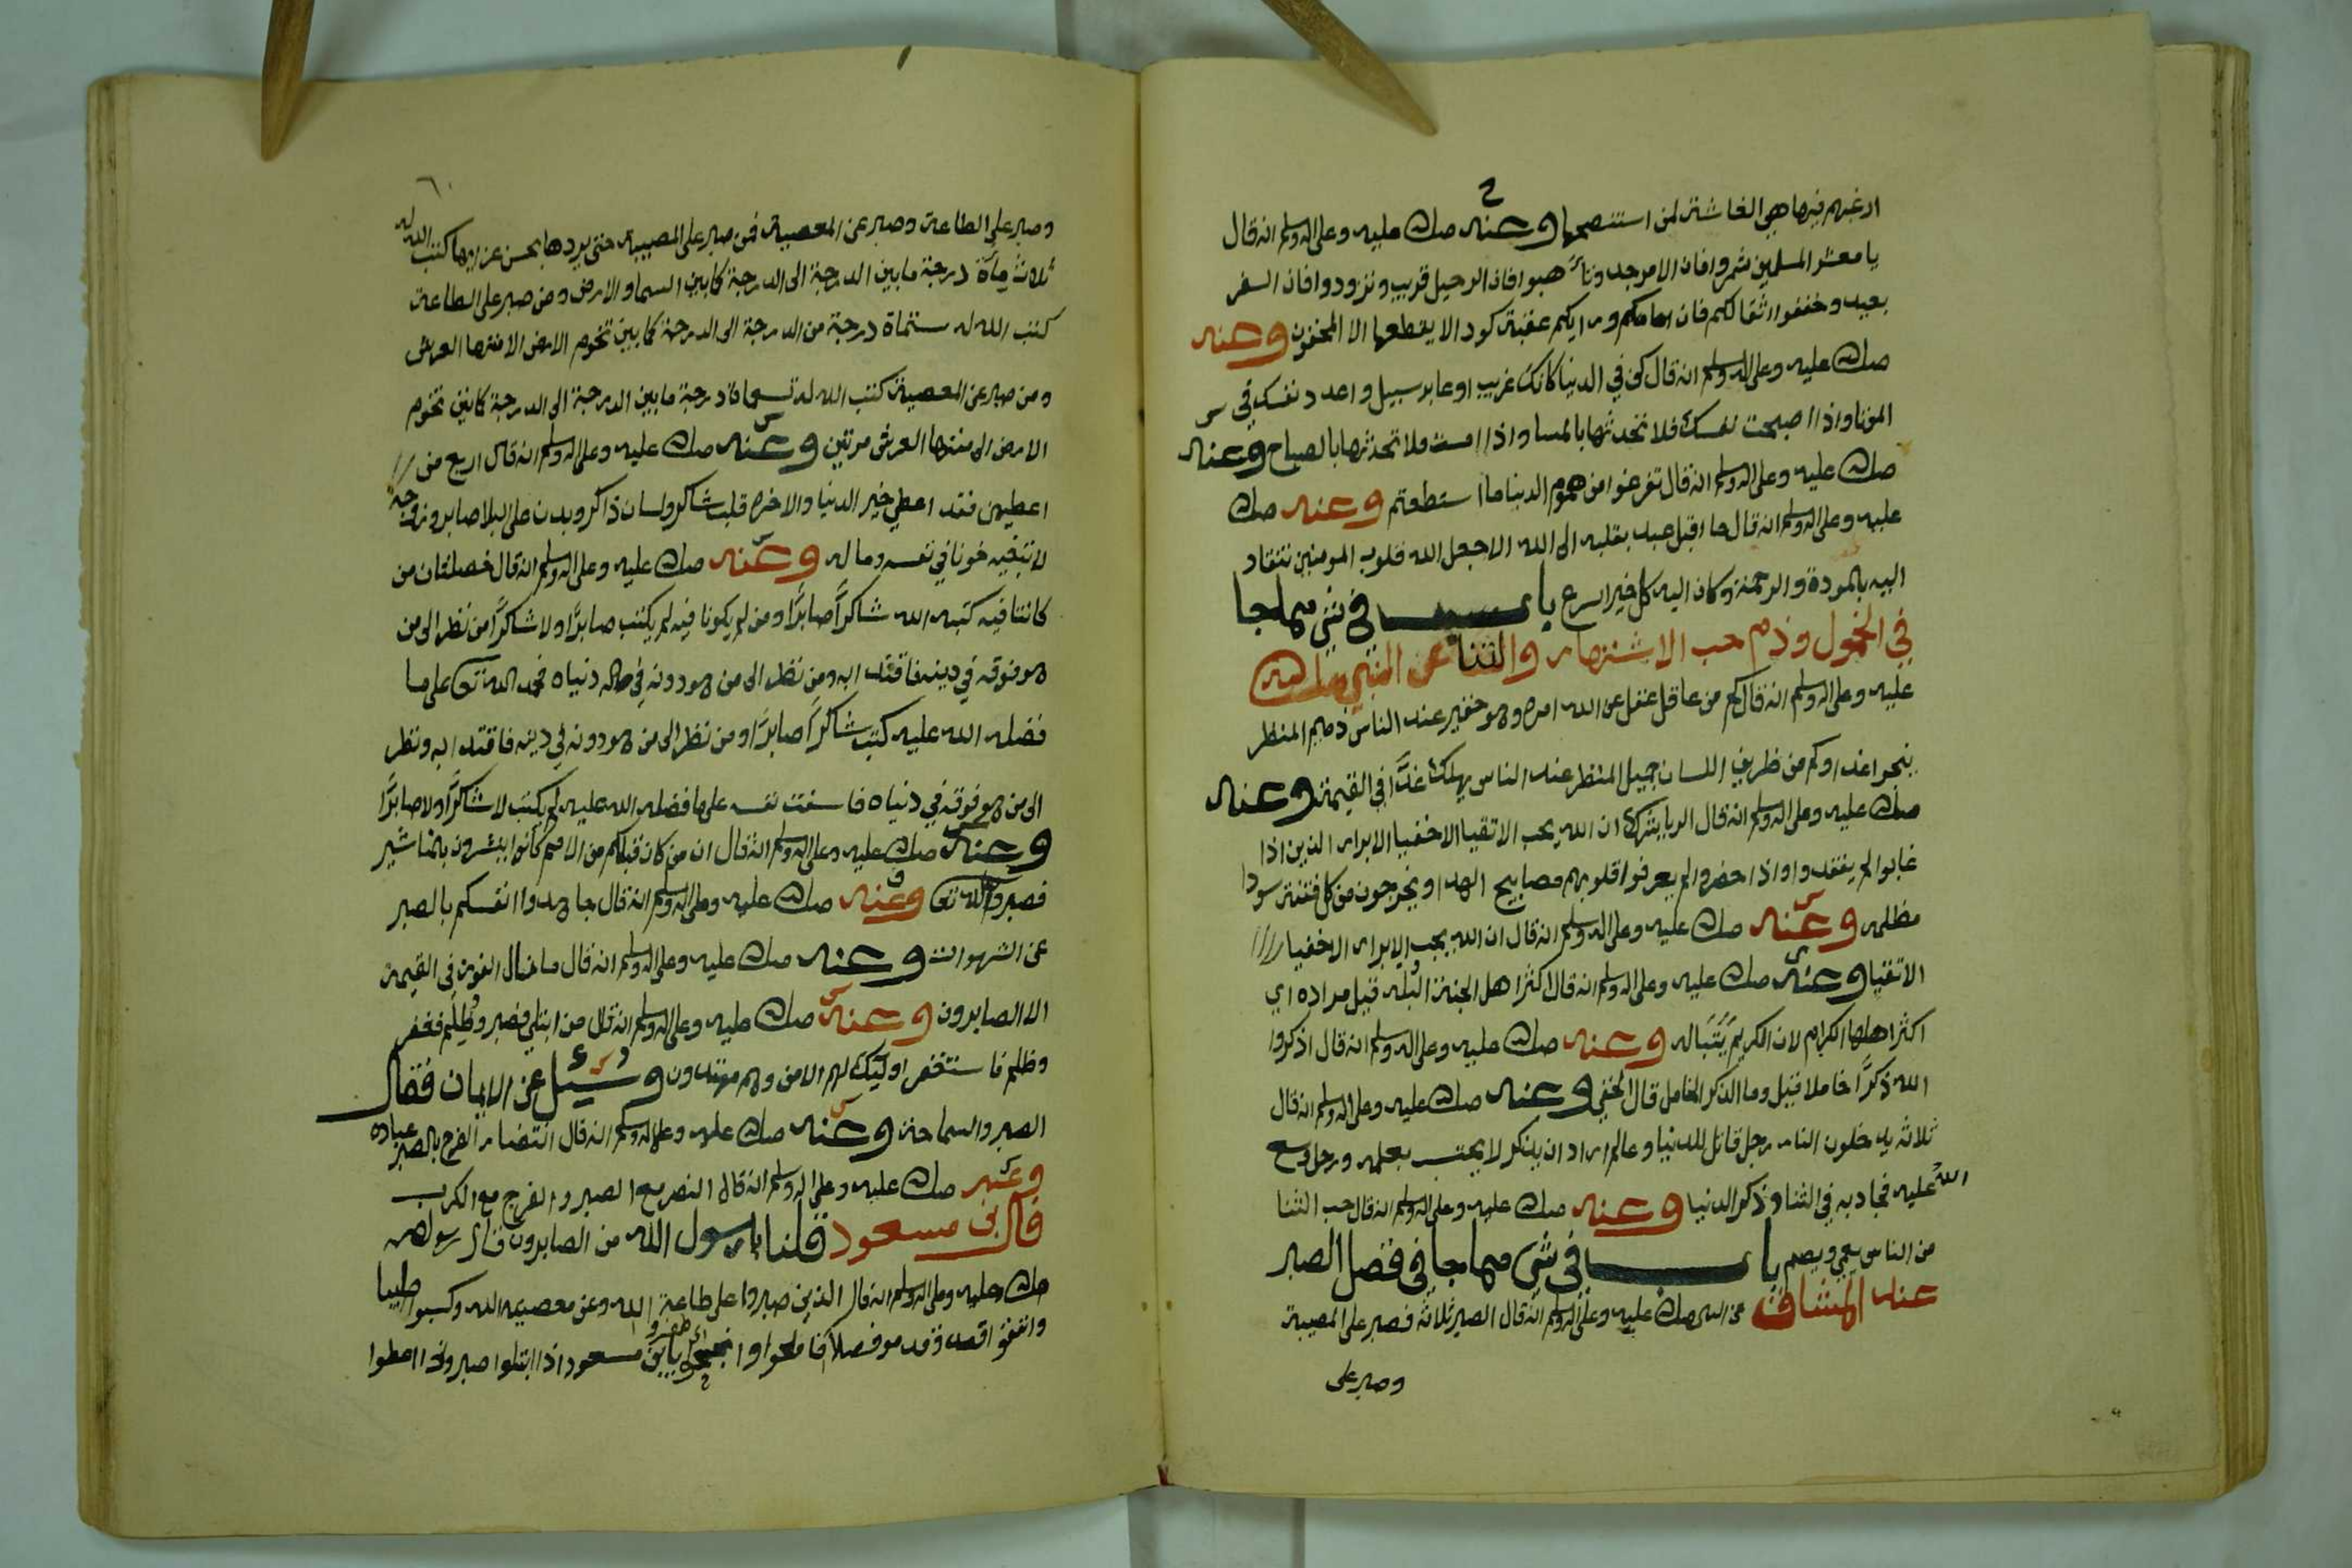 ارغبهم فيها هي الغاشة لمن استنصحها وعنه صلى الله عليه وعلى اله وسلم انه قال
يا معشر المسلمين شمروا فان الامر جد وتأهبوا فان الرحيل قريب وتزودوا فان السفر
بعيد وخففوا اثقالكم فان امامكم ورايكم عقبة كود الا يقطعها الا المخفون وعنه
صلى الله عليه وعلى اله وسلم انه قال كن في الدنيا كانك غريب او عابر سبيل واعدد نفسك في
الموتا واذا اصبحت نفسك فلا تحدثها بالمسا واذا امست فلا تحدثها بالصباح وعنه
صلى الله عليه وعلى اله وسلم انه قال تفرغوا من هموم الدنيا ما استطعتم وعنه صلى الله
عليه وعلى اله وسلم انه قال ما اقبل عبد بقلبه الى الله الا جعل الله قلوب المومنين تنقاد
اليه بالمودة والرحمة وكان اليه كل خير اسرع باب في شي مما جا
في الخمول وذم حب الاشتهار والثنا عن النبي صلى الله
عليه وعلى اله وسلم انه قال كم من عاقل عقل عن الله امره وهو حقير عند الناس ذميم المنظر
ينجوا غدا وكم من ظريف اللسان جميل المنظر عند الناس يهلك غدًا في القيمة وعنه
صلى الله عليه وعلى اله وسلم انه قال الريا شرك ان الله يحب الاتقيا الاخفيا الابرار الذين اذا
غابوا لم يفتقدوا واذا حضروا لم يعرفوا قلوبهم مصابيح الهدا ويخرجون من كل فتنة سودا
مظلمه وعنه صلى الله عليه وعلى اله وسلم انه قال ان الله يحب الابرار الاخفيا
الاتقيا وعنه صلى الله عليه وعلى اله وسلم انه قال اكثر اهل الجنة البُله قيل مراده اي
اكثر اهلها الكرام لان الكريم يَتَبَاله وعنه صلى الله عليه وعلى اله وسلم انه قال اذكروا
الله ذكرًا خاملا قيل وما الذكر الخامل قال الخفي وعنه صلى الله عليه وعلى اله وسلم انه قال
ثلاثه يدخلون النار رجل قاتل للدنيا وعالم اراد ان يذكر لا يحتسب بعلمه ورجل وسع
الله عليه فجاد به في الثنا وذكر الدنيا وعنه صلى الله عليه وعلى اله وسلم انه قال حب الثنا
من الناس يعمي ويصم باب في شي مما جا في فضل الصبر
عند المشاق عن النبي صلى الله عليه وعلى اله وسلم انه قال الصبر ثلاثه فصبر على المصيبة
وصبر على
٦٠
وصبر على الطاعة وصبر عن المعصية فمن صبر على المصيبة حتى يردها بحسن عزايها كتب الله له
ثلاث مِأَة درجة ما بين الدرجة الى الدرجة كما بين السما والارض ومن صبر على الطاعة
كتب الله له ستماة درجة من الدرجة الى الدرجة كما بين تخوم الارض الا منتها العرش
ومن صبر عن المعصية كتب الله له تسعماة درجة ما بين الدرجة الى الدرجة كما بين تخوم
الارض الى منتها العرش مرتين وعنه صلى الله عليه وعلى اله وسلم انه قال اربع من
اعطيهن فقد اعطي خير الدنيا والاخره قلب شاكر ولسان ذاكر وبدن على البلا صابر وزوجة
لا تبغيه خونا في نفسه وماله وعنه صلى الله عليه وعلى اله وسلم انه قال خصلتان من
كانتا فيه كتبه الله شاكرًا صابرًا ومن لم يكونا فيه لم يكتب صابرًا ولا شاكرًا من نظر الى من
هو فوقه في دينه فاقتدا به ومن نظر الى من هو دونه في حاله دنياه فحمد الله تعالى على ما
فضله الله عليه كتب شاكرًا صابرًا ومن نظر الى من هو دونه في دينه فاقتدا به ونظر
الى من هو فوقه في دنياه فاسفت نفسه على ما فضله الله عليه لم يكتب لا شاكرًا ولا صابرًا
وعنه صلى الله عليه وعلى اله وسلم انه قال ان من كان قبلكم من الامم كانوا ينشرون بالمناشير
فصبروا لله تعالى وعنه صلى الله عليه وعلى اله وسلم انه قال جاهدوا انفسكم بالصبر
عن الشهوات وعنه صلى الله عليه وعلى اله وسلم انه قال ما نال الفوز في القيمة
الا الصابرون وعنه صلى الله عليه وعلى اله وسلم انه قال من ابتلي فصبر وظُلِم فغفر
وظلم فاستغفر اوليك لهم الامن وهم مهتدون وسُئل عن الايمان فقال
الصبر والسماحة وعنه صلى الله عليه وعلى اله وسلم انه قال انتضار الفرج بالصبر عباده
وعنه صلى الله عليه وعلى اله وسلم انه قال النصر مع الصبر والفرج مع الكرب
قال بن مسعود قلنا يا رسول الله من الصابرون قال رسول الله
صلى الله عليه وعلى اله وسلم انه قال الذين صبروا على طاعة الله وعن معصية الله وكسبوا طيبا
وانفقوا قصدا وقدموا فضلا فافلحوا وانجحوا اي ظفروا يا بن مسعود اذا ابتلوا صبروا واذا اعطوا